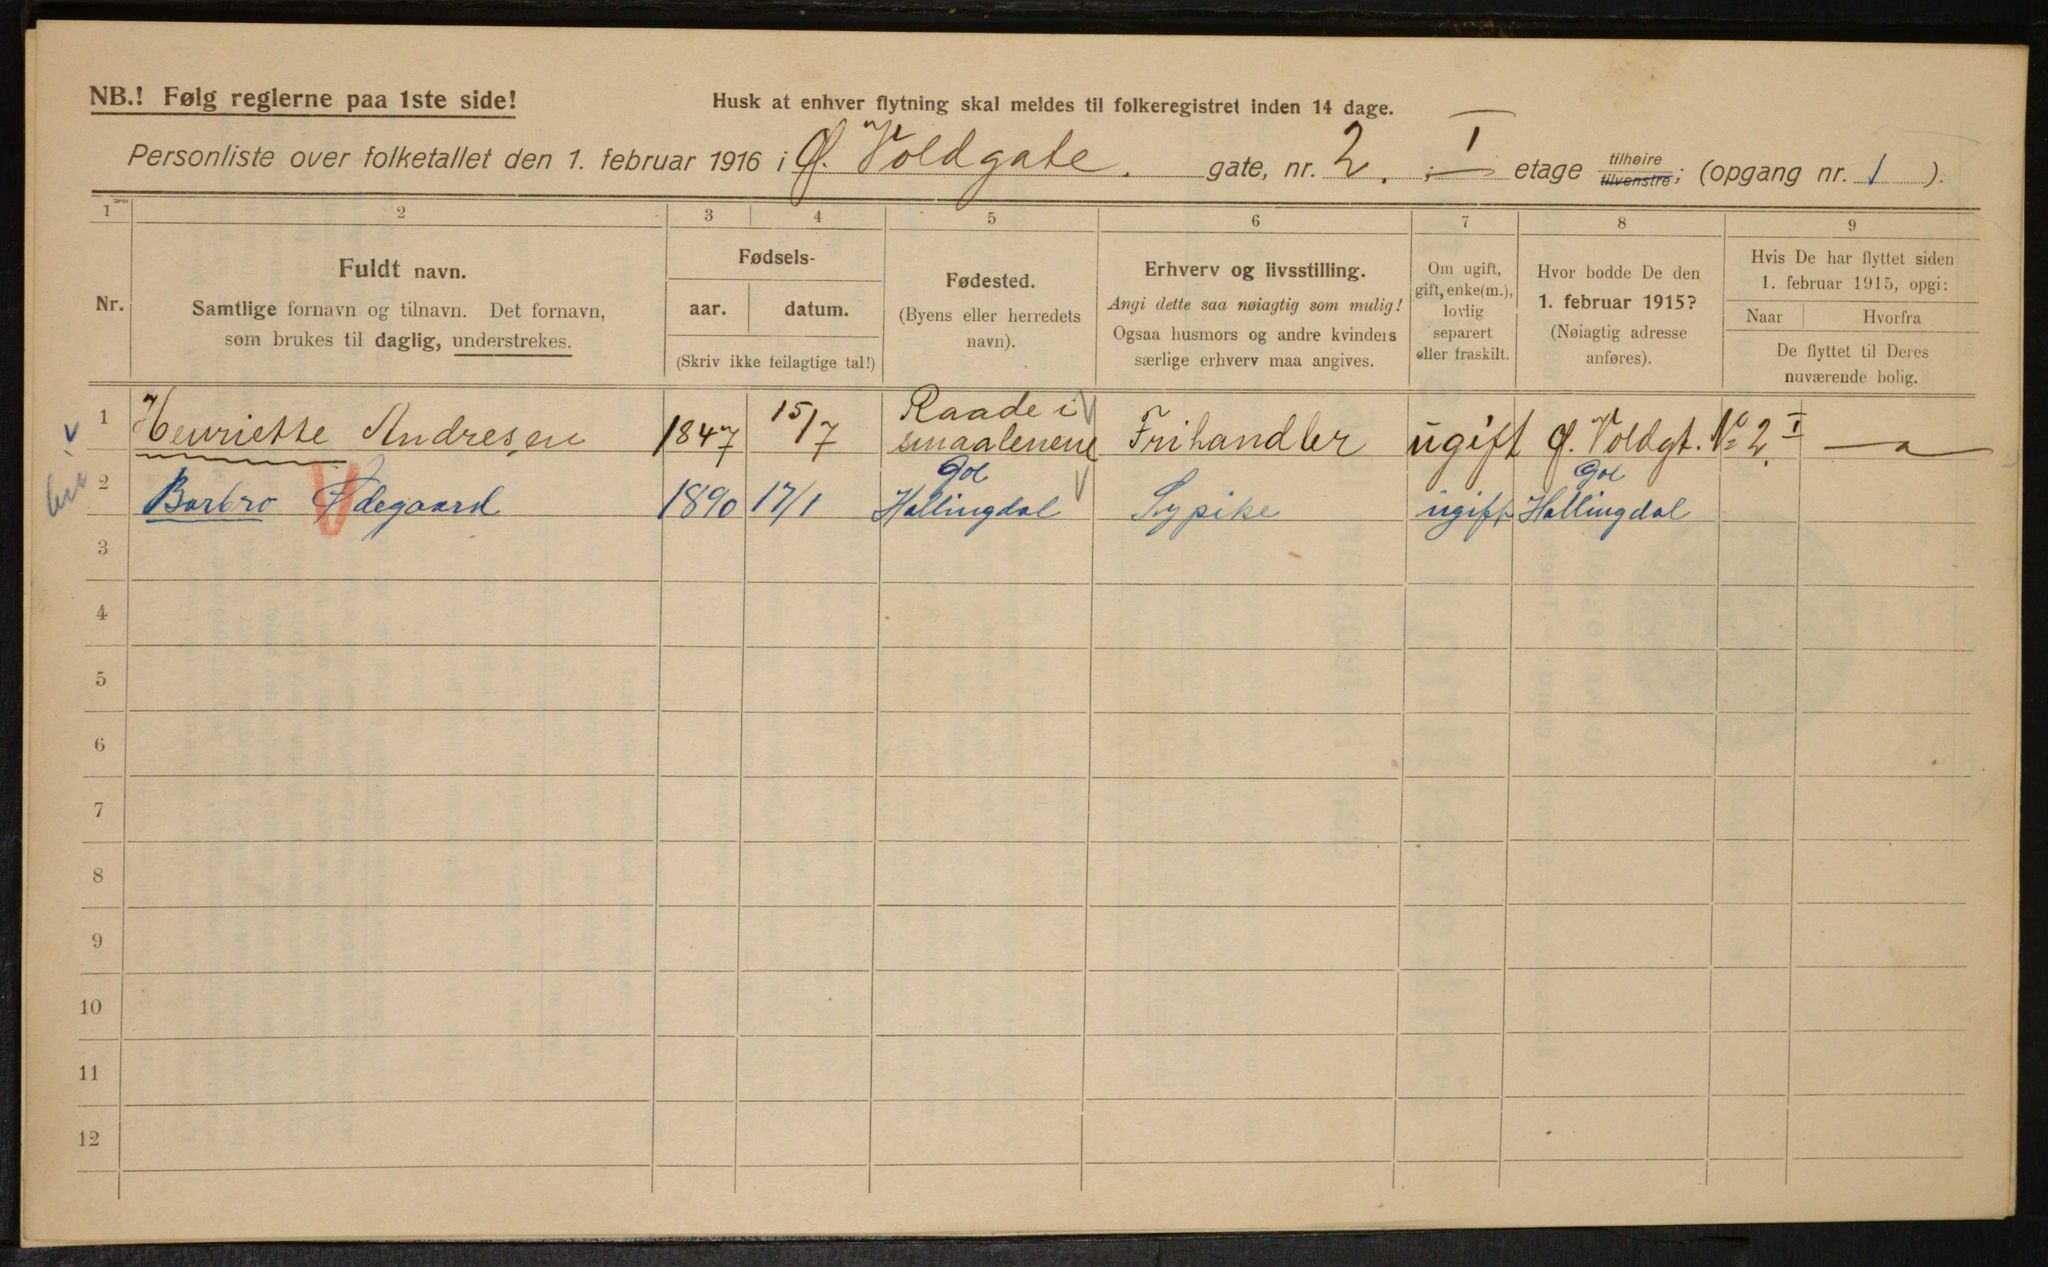 NB.! Følg reglerne paa 1ste side!
Husk at enhver flytning skal meldes til folkeregistret inden 14 dage.
Personliste over folketallet den 1. februar 1916 i Ø. Voldgate. gate, nr. 2. ; I etage tilhøire tilvenstre; (opgang nr. 1 ).
1 2 3 4 5 6 7 8 9
Nr.
Fuldt navn.
Samtlige fornavn og tilnavn. Det fornavn,
som brukes til daglig, understrekes.
Fødsels-
aar. datum.
(Skriv ikke feilagtige tal!)
Fødested.
(Byens eller herredets
navn).
Erhverv og livsstilling.
Angi dette saa nøiagtig som mulig!
Ogsaa husmors og andre kvinders
særlige erhverv maa angives.
Om ugift,
gift, enke(m.),
lovlig
separert
eller fraskilt.
Hvor bodde De den
1. februar 1915?
(Nøiagtig adresse
anføres).
Hvis De har flyttet siden
1. februar 1915, opgi:
Naar Hvorfra
De flyttet til Deres
nuværende bolig.
1 Henriette Andresen 1847 15/7 Raade i smaalenene Frihandler ugift Ø. Voldgt. No 2 I
2 Barbro Ødegaard 1890 17/1 Gol Hallingdal Sypike ugift Gol Hallingdal
3
4
5
6
7
8
9
10
11
12